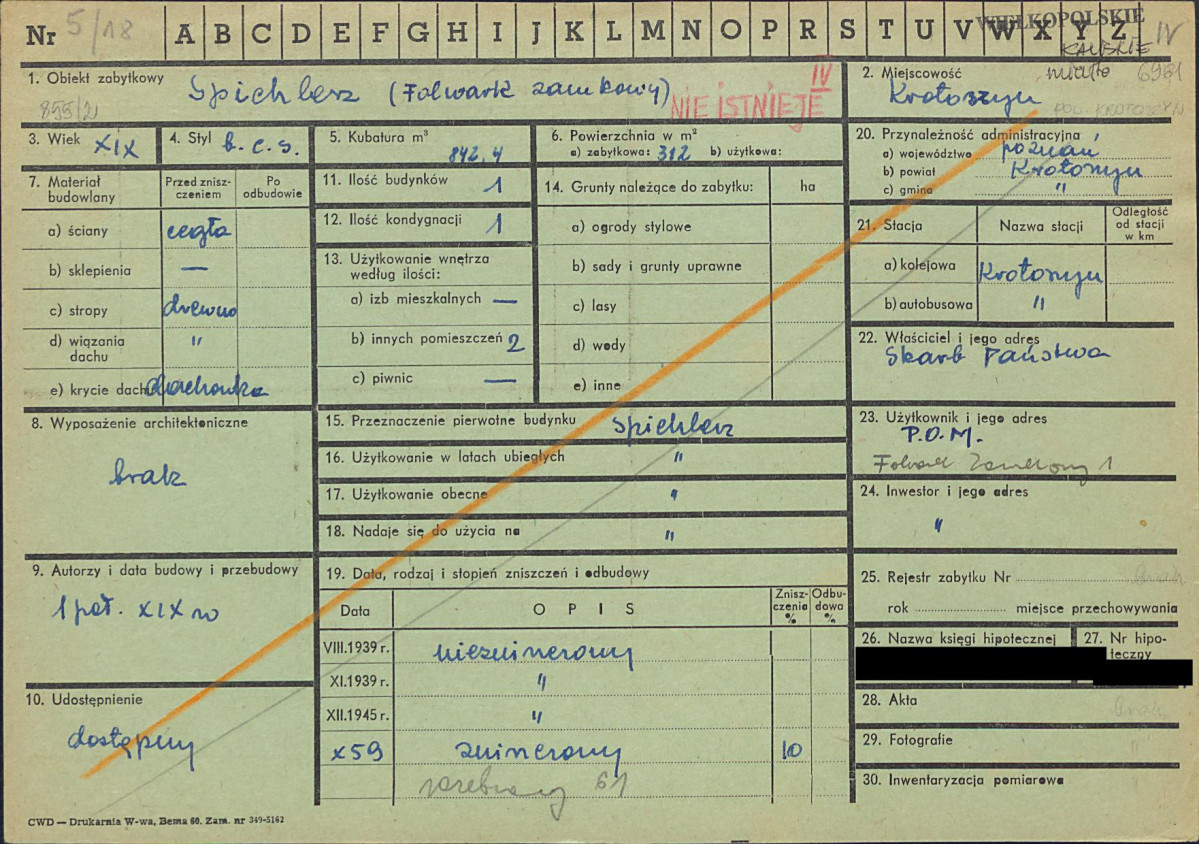 Nr 5/18 A B C D E F G H I J K L M N O P R S T U V W X Y Z IV
WIELKOPOLSKIE
KALISKIE
1. Obiekt zabytkowy Spichlerz (Folwark zamkowy)
855/2
IV
NIE ISTNIEJE
2. Miejscowość miasto 6961
Krotoszyn
POW. KROTOSZYN
3. Wiek XIX
4. Styl b. c. s.
5. Kubatura m³ 842,4
6. Powierzchnia w m²
a) zabytkowa: 312 b) użytkowa:
7. Materiał budowlany
Przed zniszczeniem
Po odbudowie
a) ściany cegła
b) sklepienia —
c) stropy drewno
d) wiązania dachu "
e) krycie dachu dachówka
8. Wyposażenie architektoniczne
brak
9. Autorzy i data budowy i przebudowy
1 poł. XIX w
10. Udostępnienie
dostępny
11. Ilość budynków 1
12. Ilość kondygnacji 1
13. Użytkowanie wnętrza według ilości:
a) izb mieszkalnych —
b) innych pomieszczeń 2
c) piwnic —
14. Grunty należące do zabytku: ha
a) ogrody stylowe
b) sady i grunty uprawne
c) lasy
d) wody
e) inne
15. Przeznaczenie pierwotne budynku Spichlerz
16. Użytkowanie w latach ubiegłych "
17. Użytkowanie obecne "
18. Nadaje się do użycia na "
19. Data, rodzaj i stopień zniszczeń i odbudowy
Data O P I S Zniszczenia % Odbudowa %
VIII.1939 r. niezniszczony
XI.1939 r. "
XII.1945 r. "
X 59 zniszczony 10
rozebrany 61
20. Przynależność administracyjna
a) województwo poznań
b) powiat Krotoszyn
c) gmina "
21. Stacja Nazwa stacji Odległość od stacji w km
a) kolejowa Krotoszyn
b) autobusowa "
22. Właściciel i jego adres
Skarb Państwa
23. Użytkownik i jego adres
P.O.M.
Folwark Zamkowy 1
24. Inwestor i jego adres
"
25. Rejestr zabytku Nr brak
rok miejsce przechowywania
26. Nazwa księgi hipotecznej
27. Nr hipoteczny
28. Akta brak
29. Fotografie "
30. Inwentaryzacja pomiarowa
CWD — Drukarnia W-wa, Bema 60. Zam. nr 349-5162